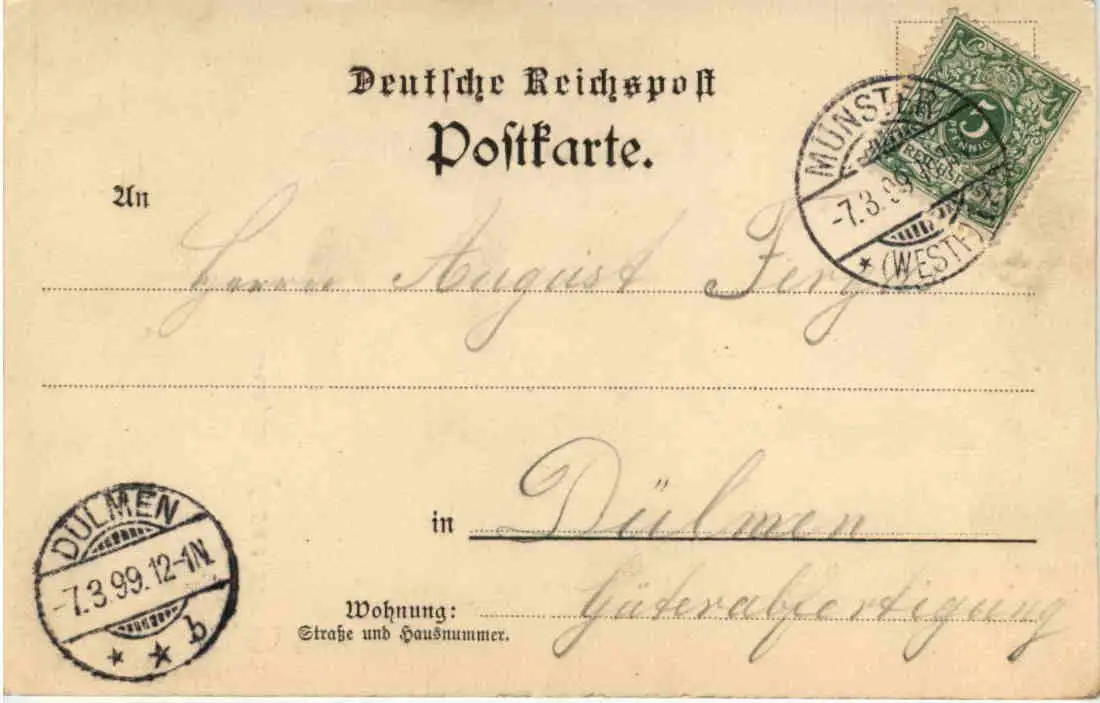 Deutsche Reichspost
Postkarte.
5
PFENNIG
REICHSPOST
MÜNSTER
-7.3.99.
* (WESTF.)
An
Herrn August
in Dülmen
Wohnung: Güterabfertigung
Straße und Hausnummer.
DÜLMEN
-7.3.99.12-1N.
* * b